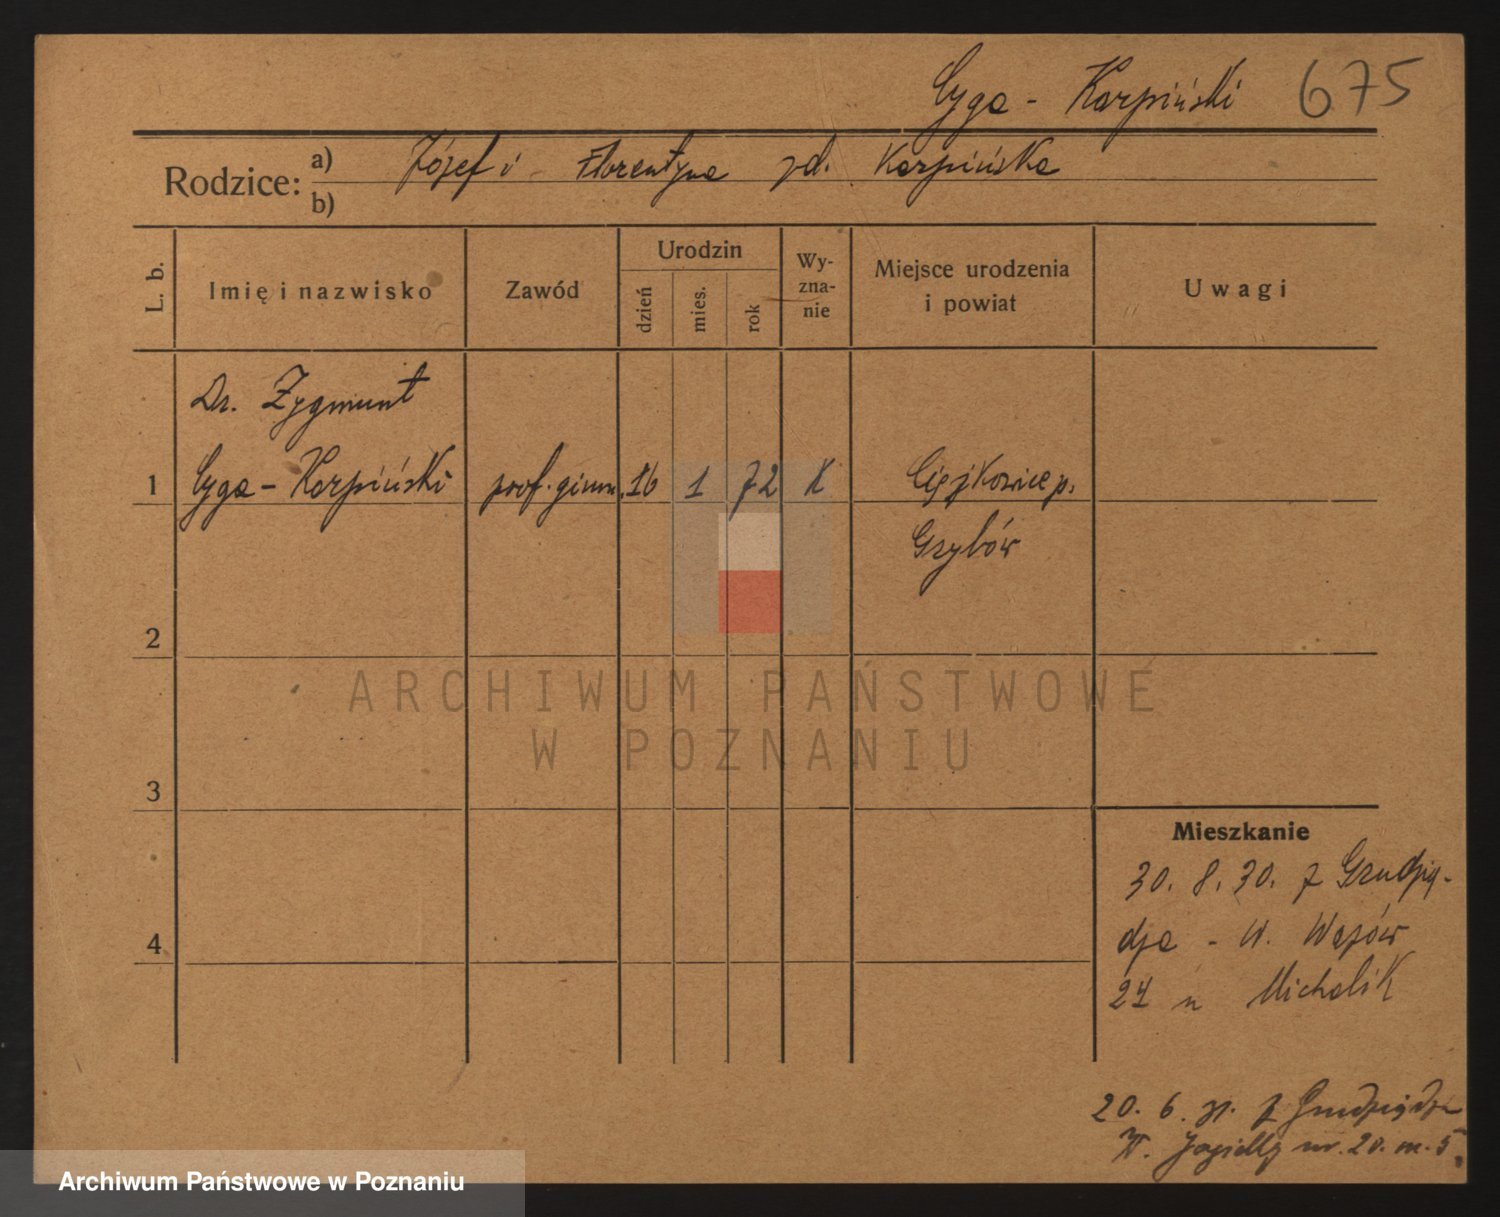 Cyga - Karpiński 675
Rodzice: a) Józef i Florentyna zd. Karpińska
b)
L. b. Imię i nazwisko Zawód Urodzin dzień mies. rok Wy-zna-nie Miejsce urodzenia i powiat Uwagi
Dr. Zygmunt
1 Cyga - Karpiński prof. gimn. 16 1 72 K Ciężkowice p.
Grybów
2
ARCHIWUM PAŃSTWOWE
W POZNANIU
3
Mieszkanie
30. 8. 30. z Grudzią-
4 dza - W. Wazów
24 u Michalik
20. 6. 31. z Grudziądza
W. Jagiełły nr. 20. m. 5.
Archiwum Państwowe w Poznaniu